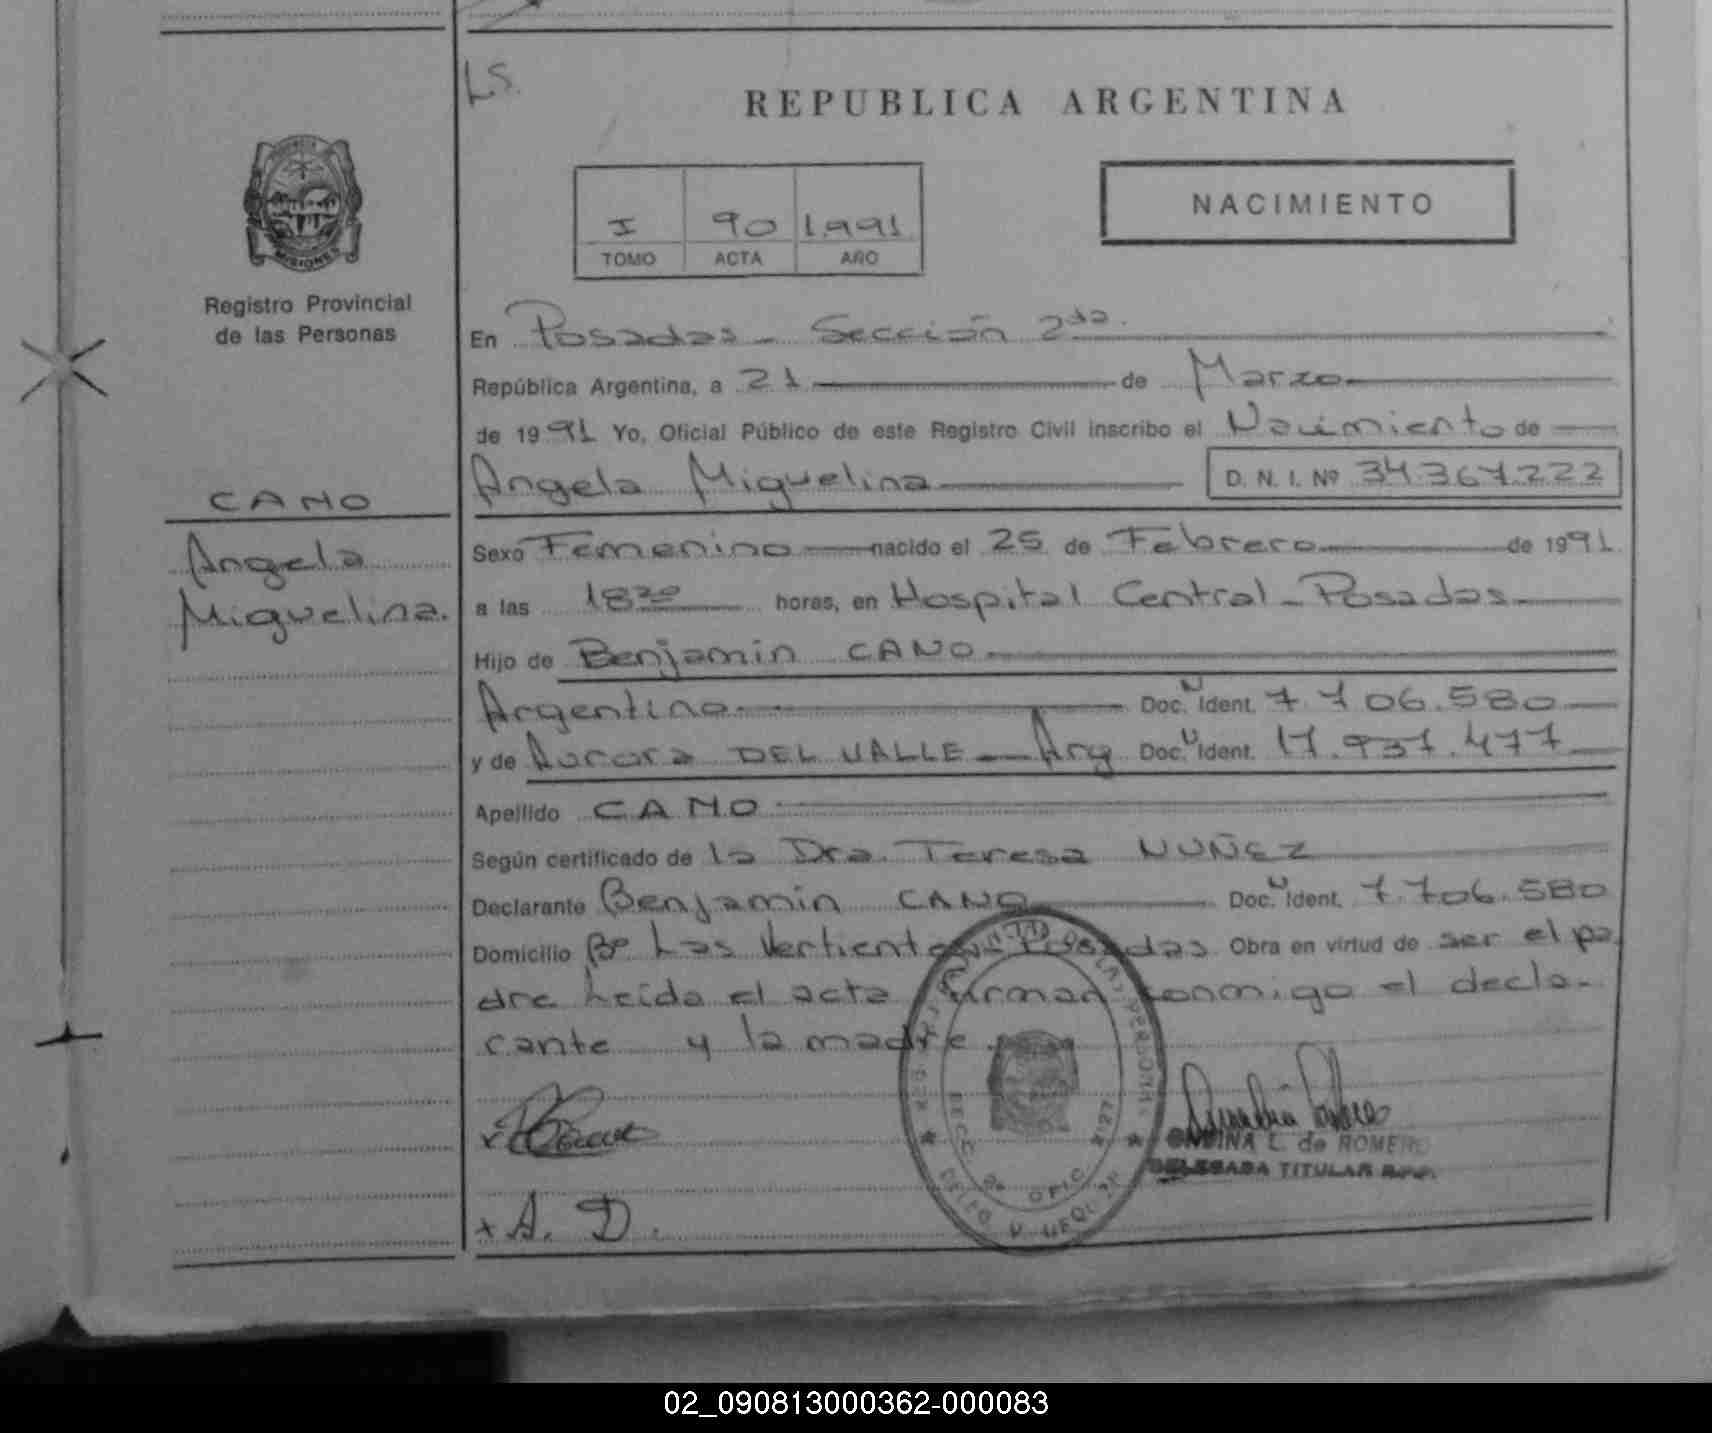 L.S.
REPUBLICA ARGENTINA
NACIMIENTO
I 90 1.991
TOMO ACTA AÑO
MISIONES
Registro Provincial
de las Personas
En Posadas - Sección 2da.
República Argentina, a 21 de Marzo
de 1991 Yo, Oficial Público de este Registro Civil inscribo el Nacimiento de
Angela Miguelina D. N. I. Nº 34.367.222
CANO
Angela
Miguelina.
Sexo Femenino nacido el 25 de Febrero de 1991
a las 18 horas, en Hospital Central - Posadas
Hijo de Benjamin CANO
Argentino Doc. N Ident. 7.706.580
y de Aurora DEL VALLE - Arg Doc. N Ident. 17.937.477
Apellido CANO
Según certificado de la Dra. Teresa NUÑEZ
Declarante Benjamin CANO Doc. N Ident. 7.706.580
Domicilio Bº Las Vertientes Posadas Obra en virtud de ser el pa
dre Leida el acta firman conmigo el decla-
rante y la madre
L. de ROMERO
DELEGADA TITULAR R.P.P.
x A. D.
02_090813000362-000083